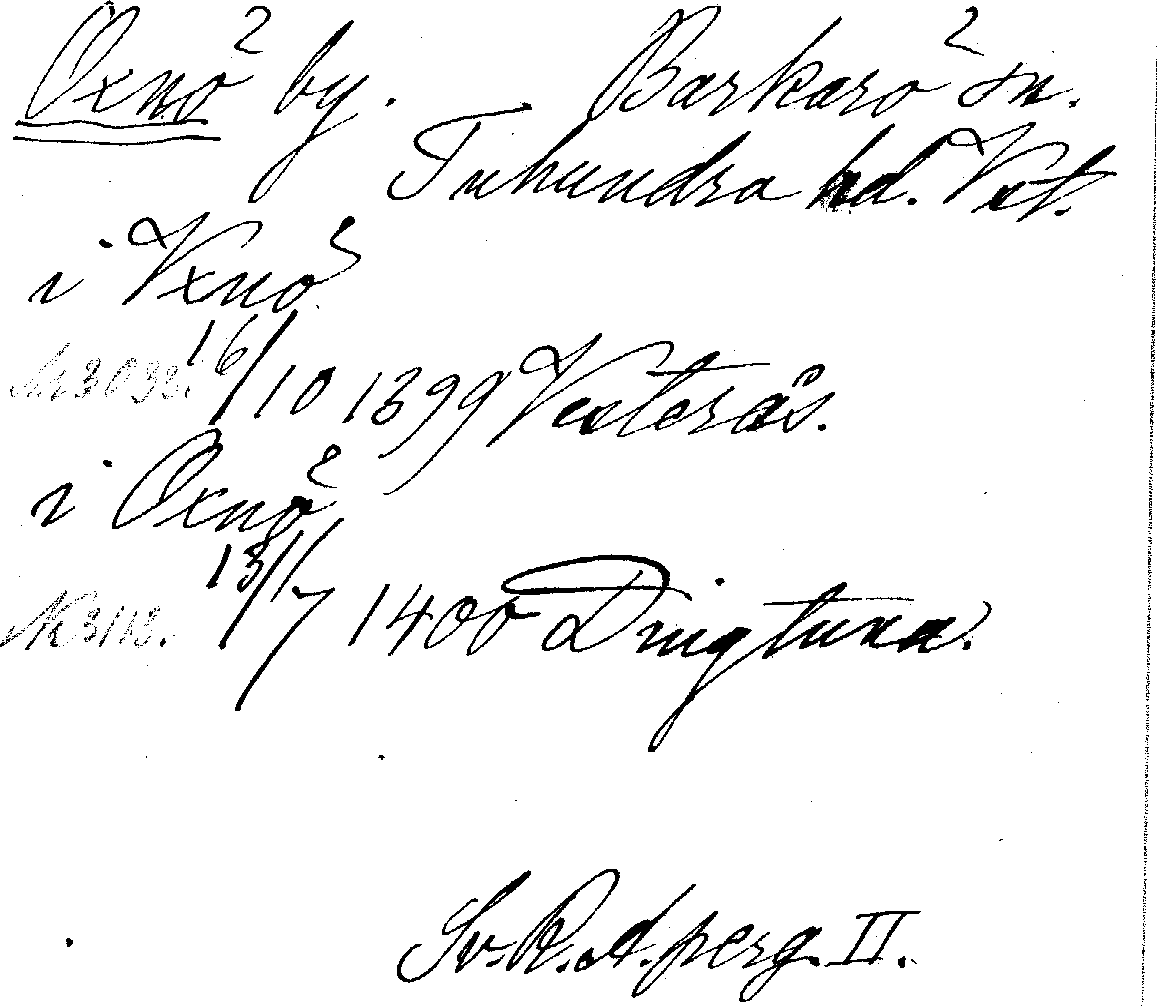 Oxnö by. Barkarö sn.
Tuhundra hd. Vstm.
i Vxnö
Nr 3033. 16/10 1399 Vesterås.
i Oxnö
Nr 3113. 13/7 1400 Dingtuna.
Sv. R. A. perg. II.